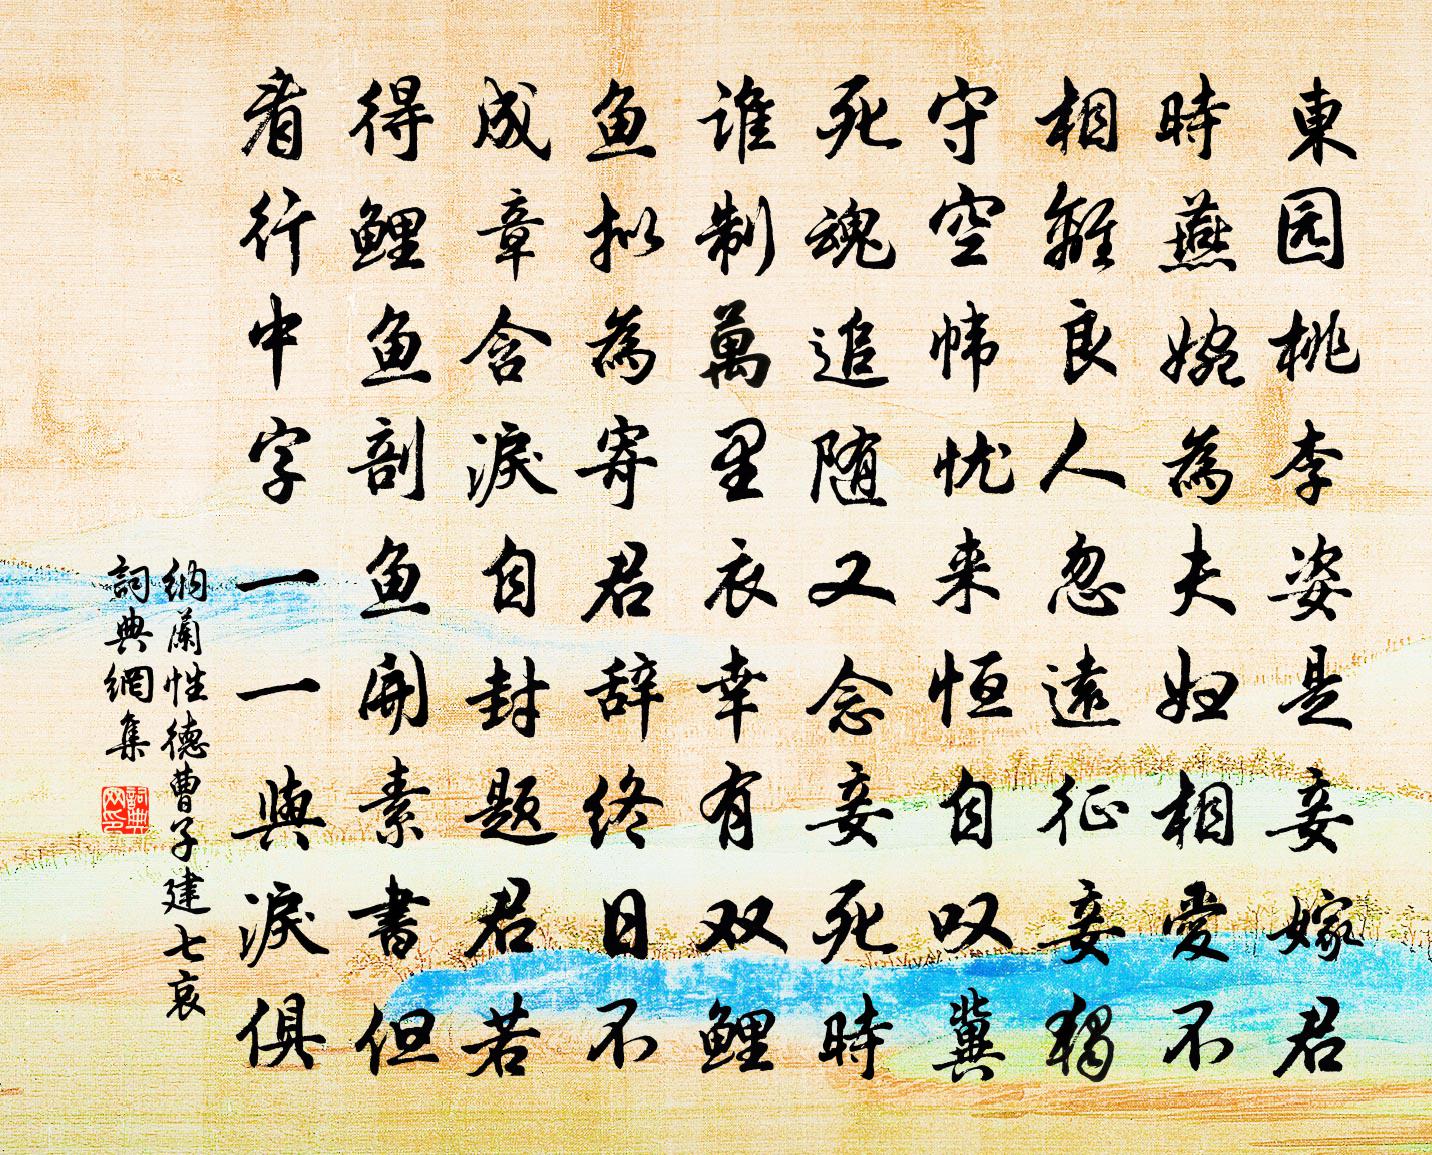 東园桃李姿是妾嫁君
時燕婉為夫妇相愛不
相離良人忽遠征妾獨
守空帏忧来恒自叹冀
死魂追随又念妾死時
谁制萬里衣幸有双鲤
鱼拟為寄君辞终日不
成章含淚自封题君若
得鲤鱼剖鱼開素書但
看行中字一一與淚俱
纳蘭性德曹子建七哀
詞典網集
詞典
网印